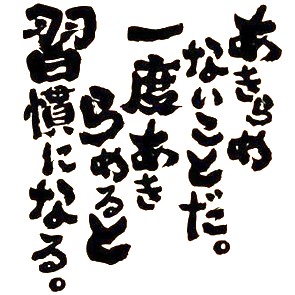 あきらめ
ないことだ。
一度あき
らめると
習慣になる。